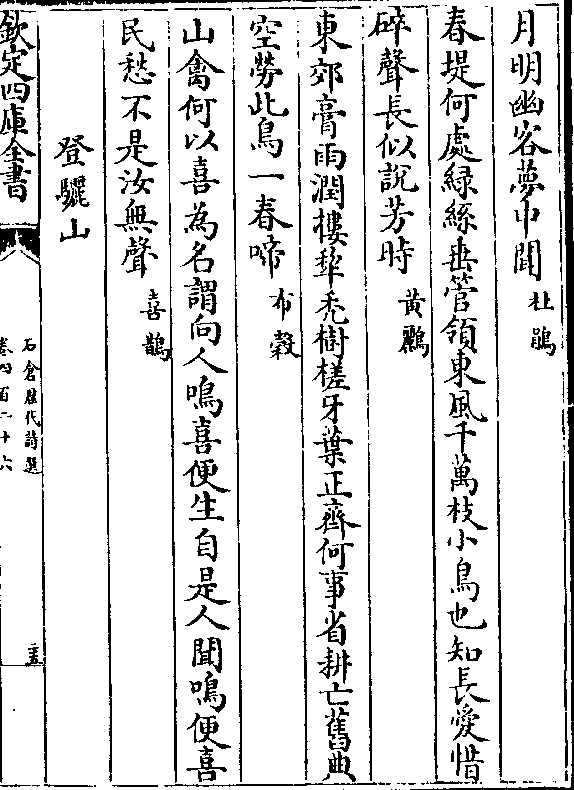 月明幽客夢中聞杜鵑
春堤何處緑絲垂管領東風千萬枝小鳥也知長愛惜
碎聲長似說芳時黄鸝
東郊膏雨潤摟犂秃樹槎牙葉正齊何事省耕亡舊典
空勞此鳥一春啼布穀
山禽何以喜為名謂向人鳴喜便生自是人聞鳴便喜
民愁不是汝無聲喜鵲
登驪山
欽定四庫全書
石倉歷代詩選
卷四百二十六